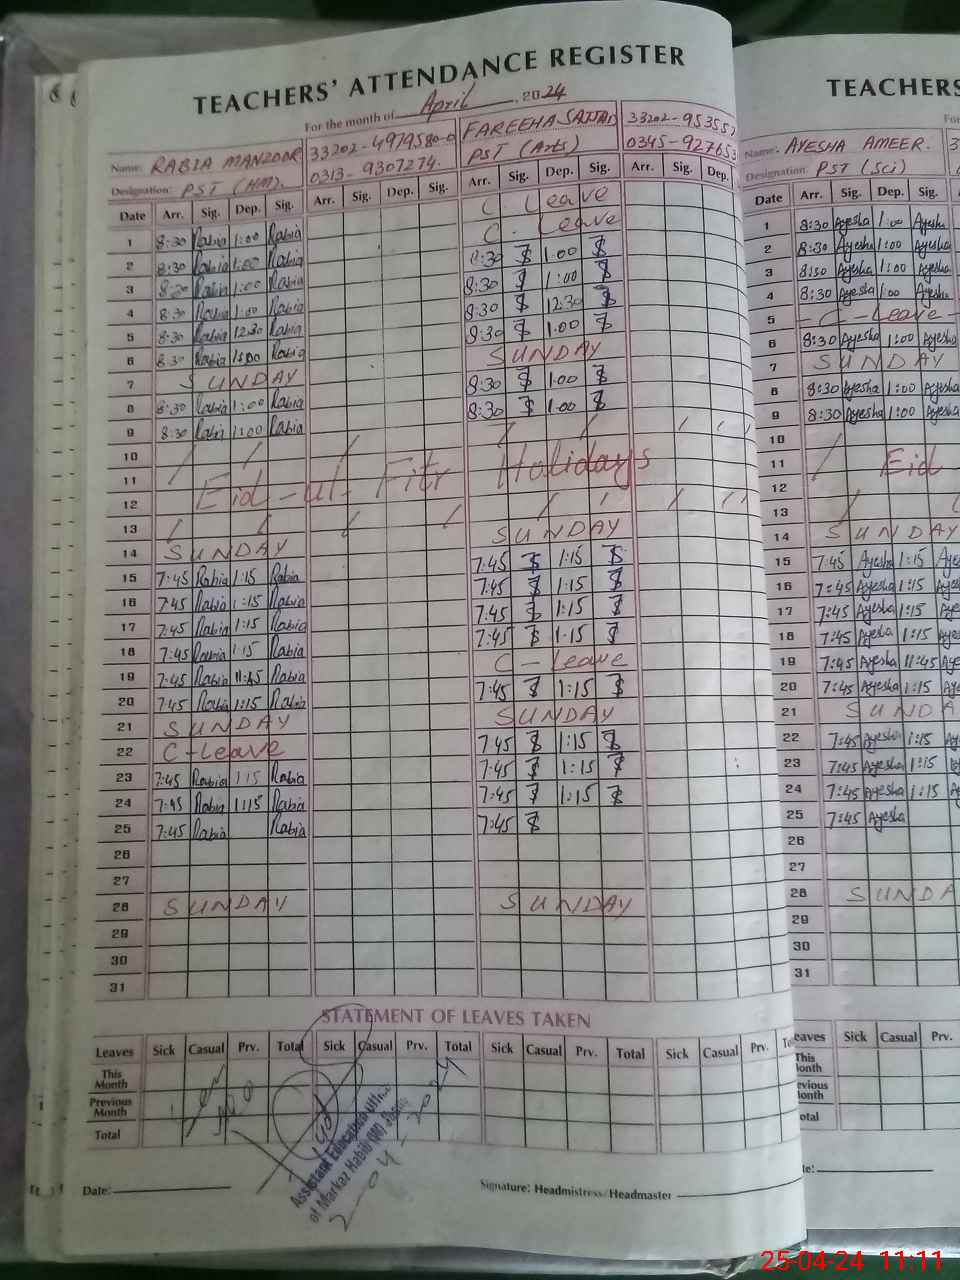 TEACHERS' ATTENDANCE REGISTER
For the month of April, 2024
Name: RABIA MANZOOR 33202-4979580-0 FAREEHA SAJJAD
Designation: PST (HM). 0313-9307274. PST (Arts)
Date Arr. Sig. Dep. Sig. Arr. Sig. Dep. Sig. Arr. Sig. Dep. Sig. Arr. Sig. Dep.
1 8:30 Rabia 1:00 Rabia C. Leave
2 8:30 Rabia 1:00 Rabia C. Leave
3 8:30 Rabia 1:00 Rabia 8:30 1:00
4 8:30 Rabia 1:00 Rabia 8:30 1:00
5 8:30 Rabia 12:30 Rabia 8:30 12:30
6 8:30 Rabia 1:00 Rabia 8:30 1:00
7 SUNDAY SUNDAY
8 8:30 Rabia 1:00 Rabia 8:30 1:00
9 8:30 Rabia 1:00 Rabia 8:30 1:00
10
11
12 Eid-ul-Fitr Holidays
13
14 SUNDAY SUNDAY
15 7:45 Rabia 1:15 Rabia 7:45 1:15
16 7:45 Rabia 1:15 Rabia 7:45 1:15
17 7:45 Rabia 1:15 Rabia 7:45 1:15
18 7:45 Rabia 1:15 Rabia 7:45 1:15
19 7:45 Rabia 11:45 Rabia C-Leave
20 7:45 Rabia 1:15 Rabia 7:45 1:15
21 SUNDAY SUNDAY
22 C-Leave 7:45 1:15
23 7:45 Rabia 1:15 Rabia 7:45 1:15
24 7:45 Rabia 1:15 Rabia 7:45 1:15
25 7:45 Rabia Rabia 7:45
26
27
28 SUNDAY SUNDAY
29
30
31
STATEMENT OF LEAVES TAKEN
Leaves Sick Casual Prv. Total Sick Casual Prv. Total Sick Casual Prv. Total Sick Casual Prv.
This Month
Previous Month
Total
Assistant Education
of Markaz Habib
2-04-2024
Date: Signature: Headmistress/Headmaster
TEACHERS
Name: AYESHA AMEER.
Designation: PST (Sci)
Date Arr. Sig. Dep. Sig.
1 8:30 Ayesha 1:00 Ayesha
2 8:30 Ayesha 1:00 Ayesha
3 8:30 Ayesha 1:00 Ayesha
4 8:30 Ayesha 1:00 Ayesha
5 -C-Leave-
6 8:30 Ayesha 1:00 Ayesha
7 SUNDAY
8 8:30 Ayesha 1:00 Ayesha
9 8:30 Ayesha 1:00 Ayesha
10
11 Eid
12
13
14 SUNDAY
15 7:45 Ayesha 1:15
16 7:45 Ayesha 1:15
17 7:45 Ayesha 1:15
18 7:45 Ayesha 1:15
19 7:45 Ayesha 11:45
20 7:45 Ayesha 1:15
21 SUNDA
22 7:45 Ayesha 1:15
23 7:45 Ayesha 1:15
24 7:45 Ayesha 1:15
25 7:45 Ayesha
26
27
28 SUNDA
29
30
31
Sick Casual Prv.
25-04-24 11:11